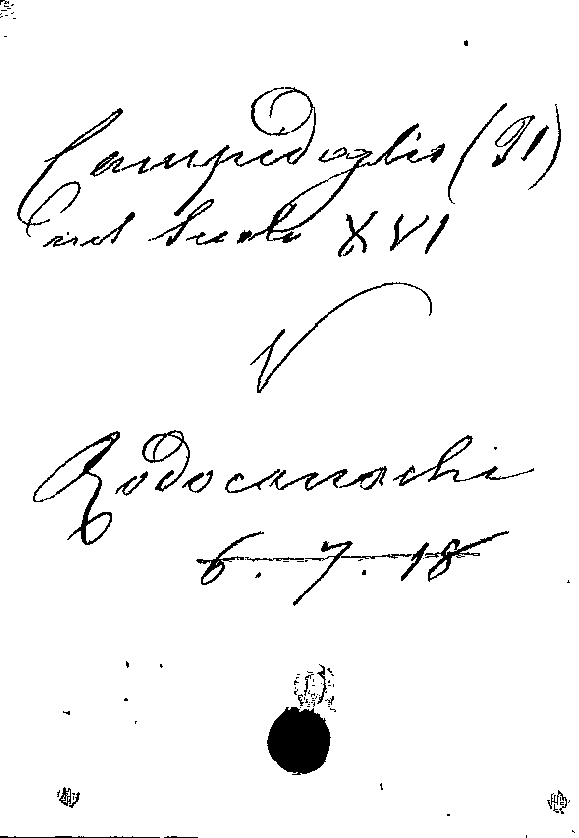 Campidoglio (91)
nel Secolo XVI
V
Rodocanachi
6. 7. 18